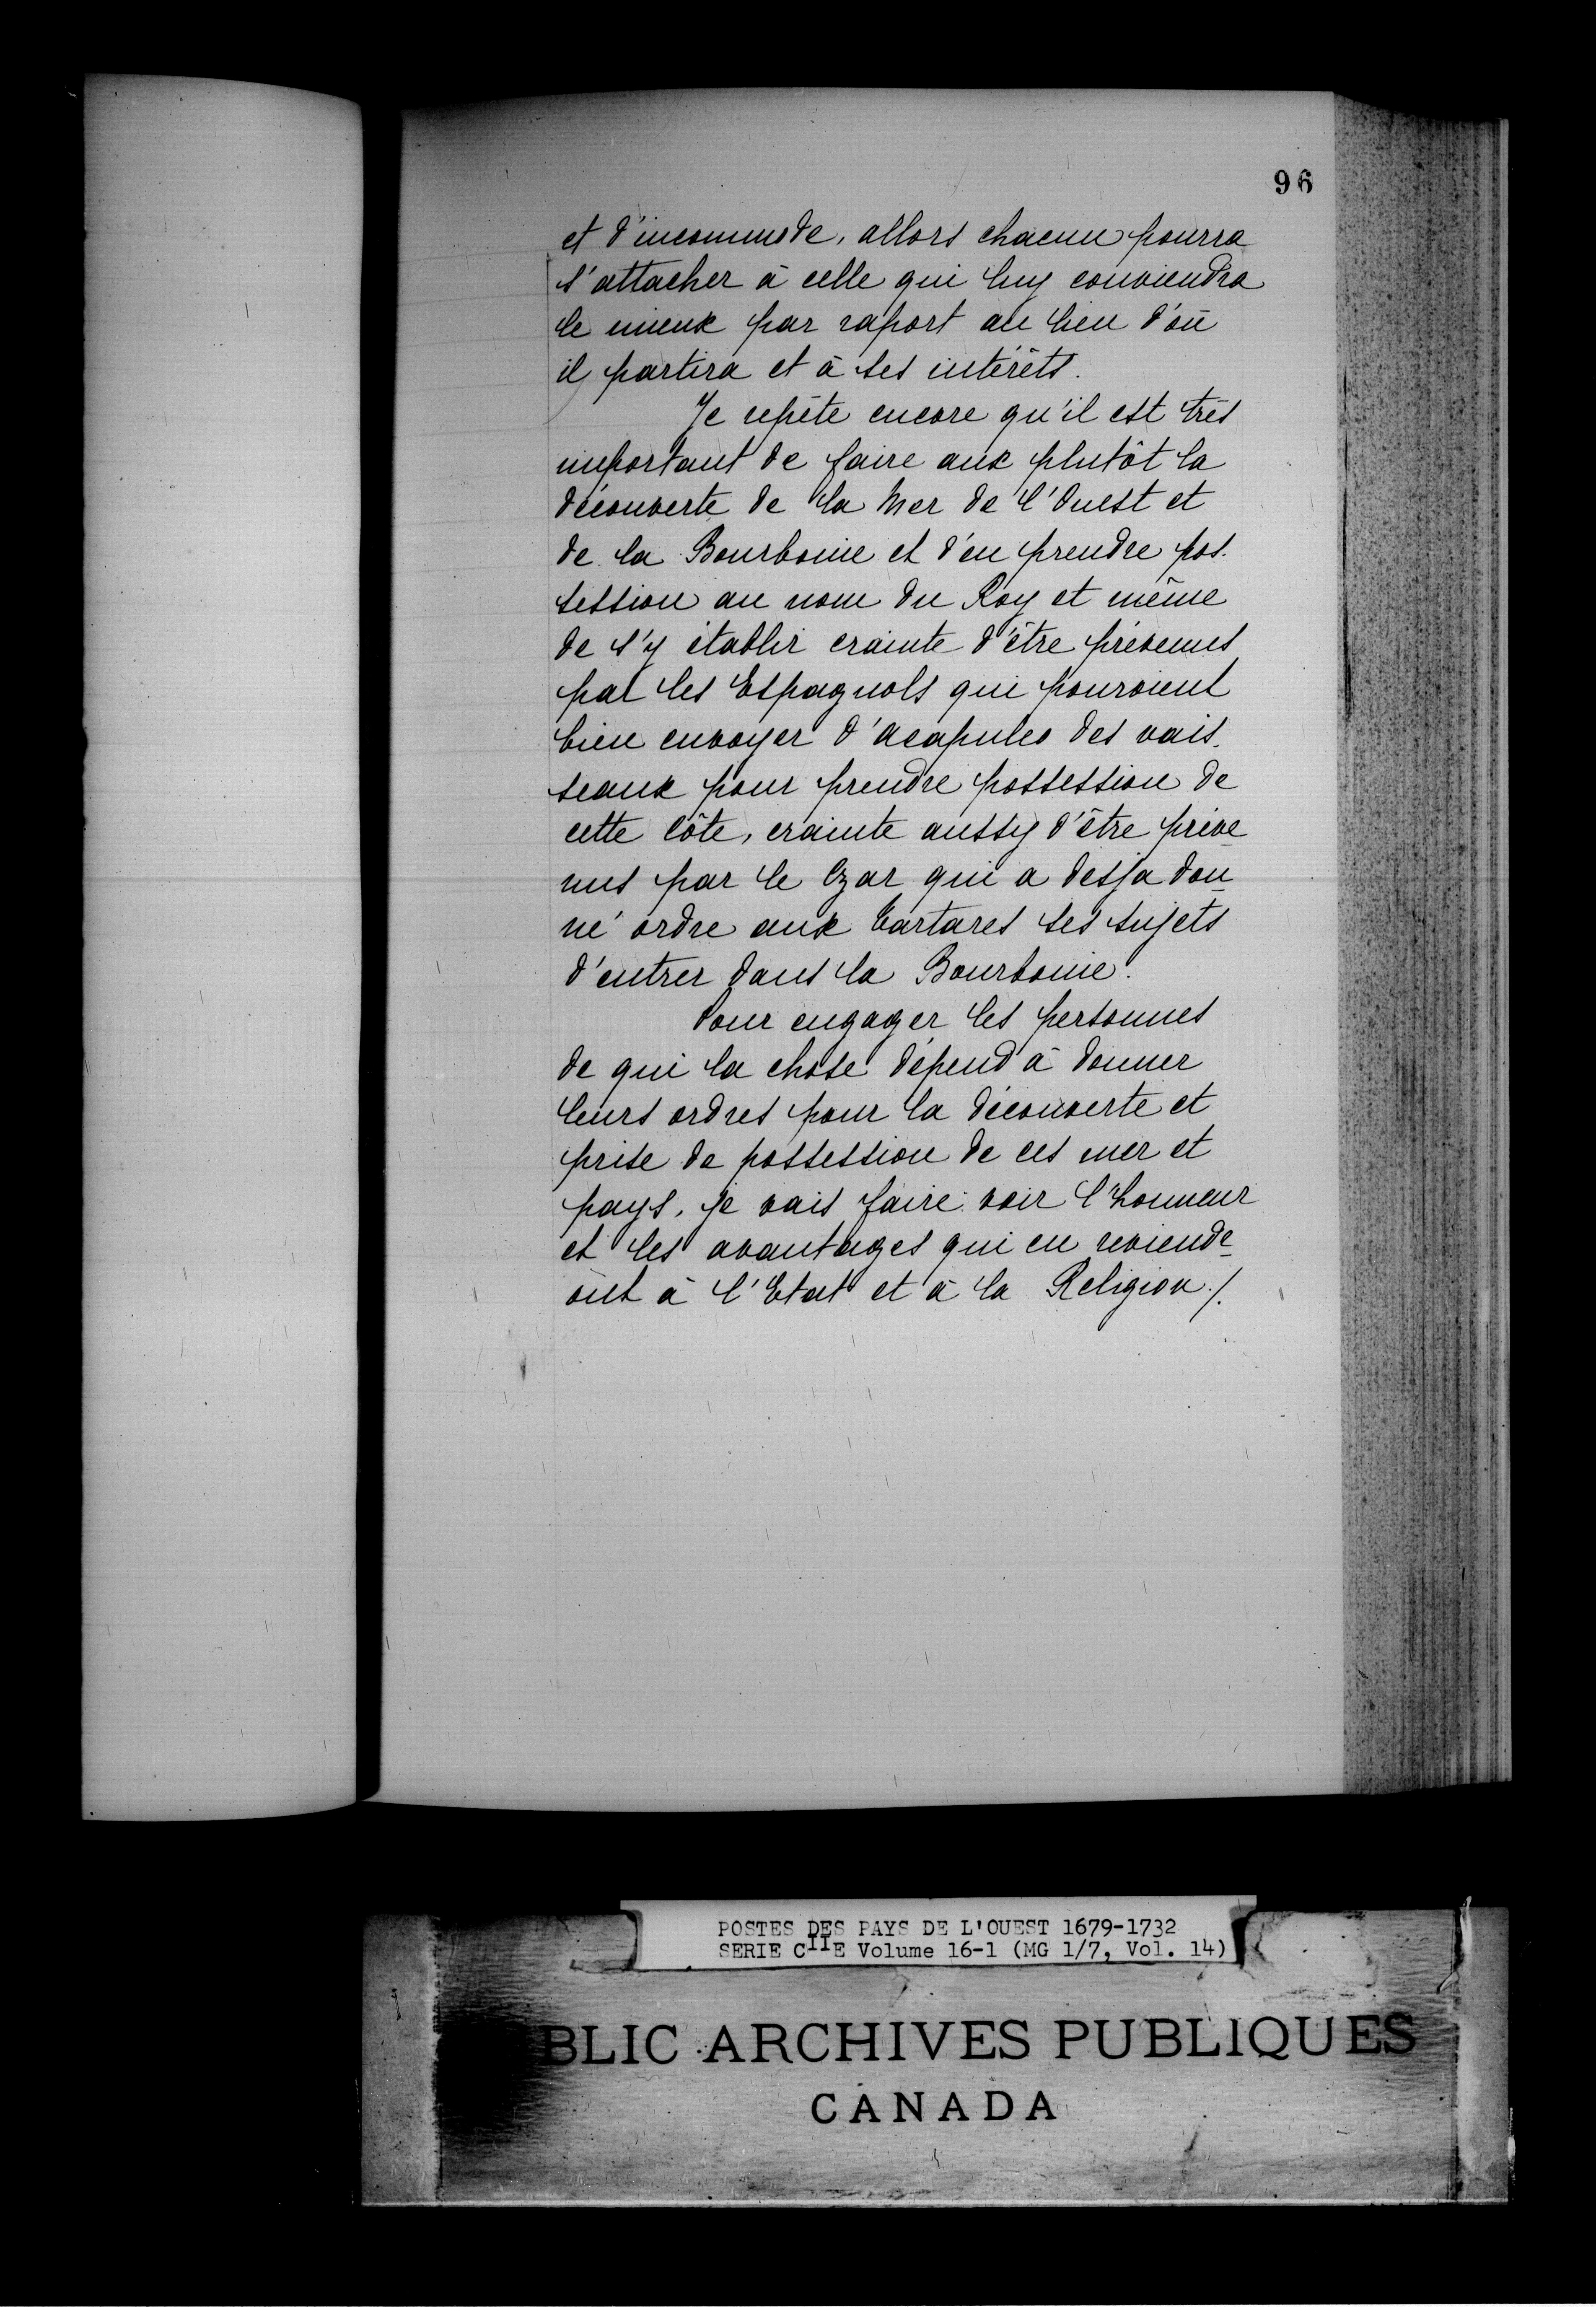 96
et d'incommode, allors chacun pourra
s'attacher à celle qui luy conviendra
le mieux par raport au lieu d'où
il partira et à ses intérêts.
Je repète encore qu'il est très
important de faire aux plutôt la
découverte de la Mer de l'Ouest et
de la Bourbonie et d'en prendre pos-
session au nom du Roy et même
de s'y établir crainte d'être prévenus
par les Espagnols qui pouroient
bien envoyer d'Acapulco des vais-
seaux pour prendre possession de
cette côte, crainte aussy d'être préve
nus par le Czar qui a desja don-
né ordre aux Tartares ses sujets
d'entrer dans la Bourbonie.
Pour engager les personnes
de qui la chose dépend à donner
leurs ordres pour la découverte et
prise de possession de ces mer et
pays, je vais faire voir l'honneur
et les avantages qui en reviendr-
ont à l'Etat et à la Religion ./.
POSTES DES PAYS DE L'OUEST 1679-1732
SERIE CIIE Volume 16-1 (MG 1/7, Vol. 14)
BLIC ARCHIVES PUBLIQUES
CANADA